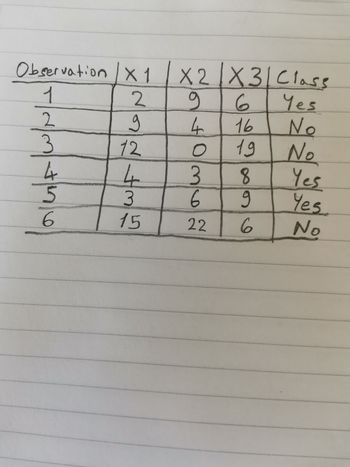 Observation X1 X2 X3 Class
1 2 9 6 Yes
2 9 4 16 No
3 12 0 19 No
4 4 3 8 Yes
5 3 6 9 Yes
6 15 22 6 No